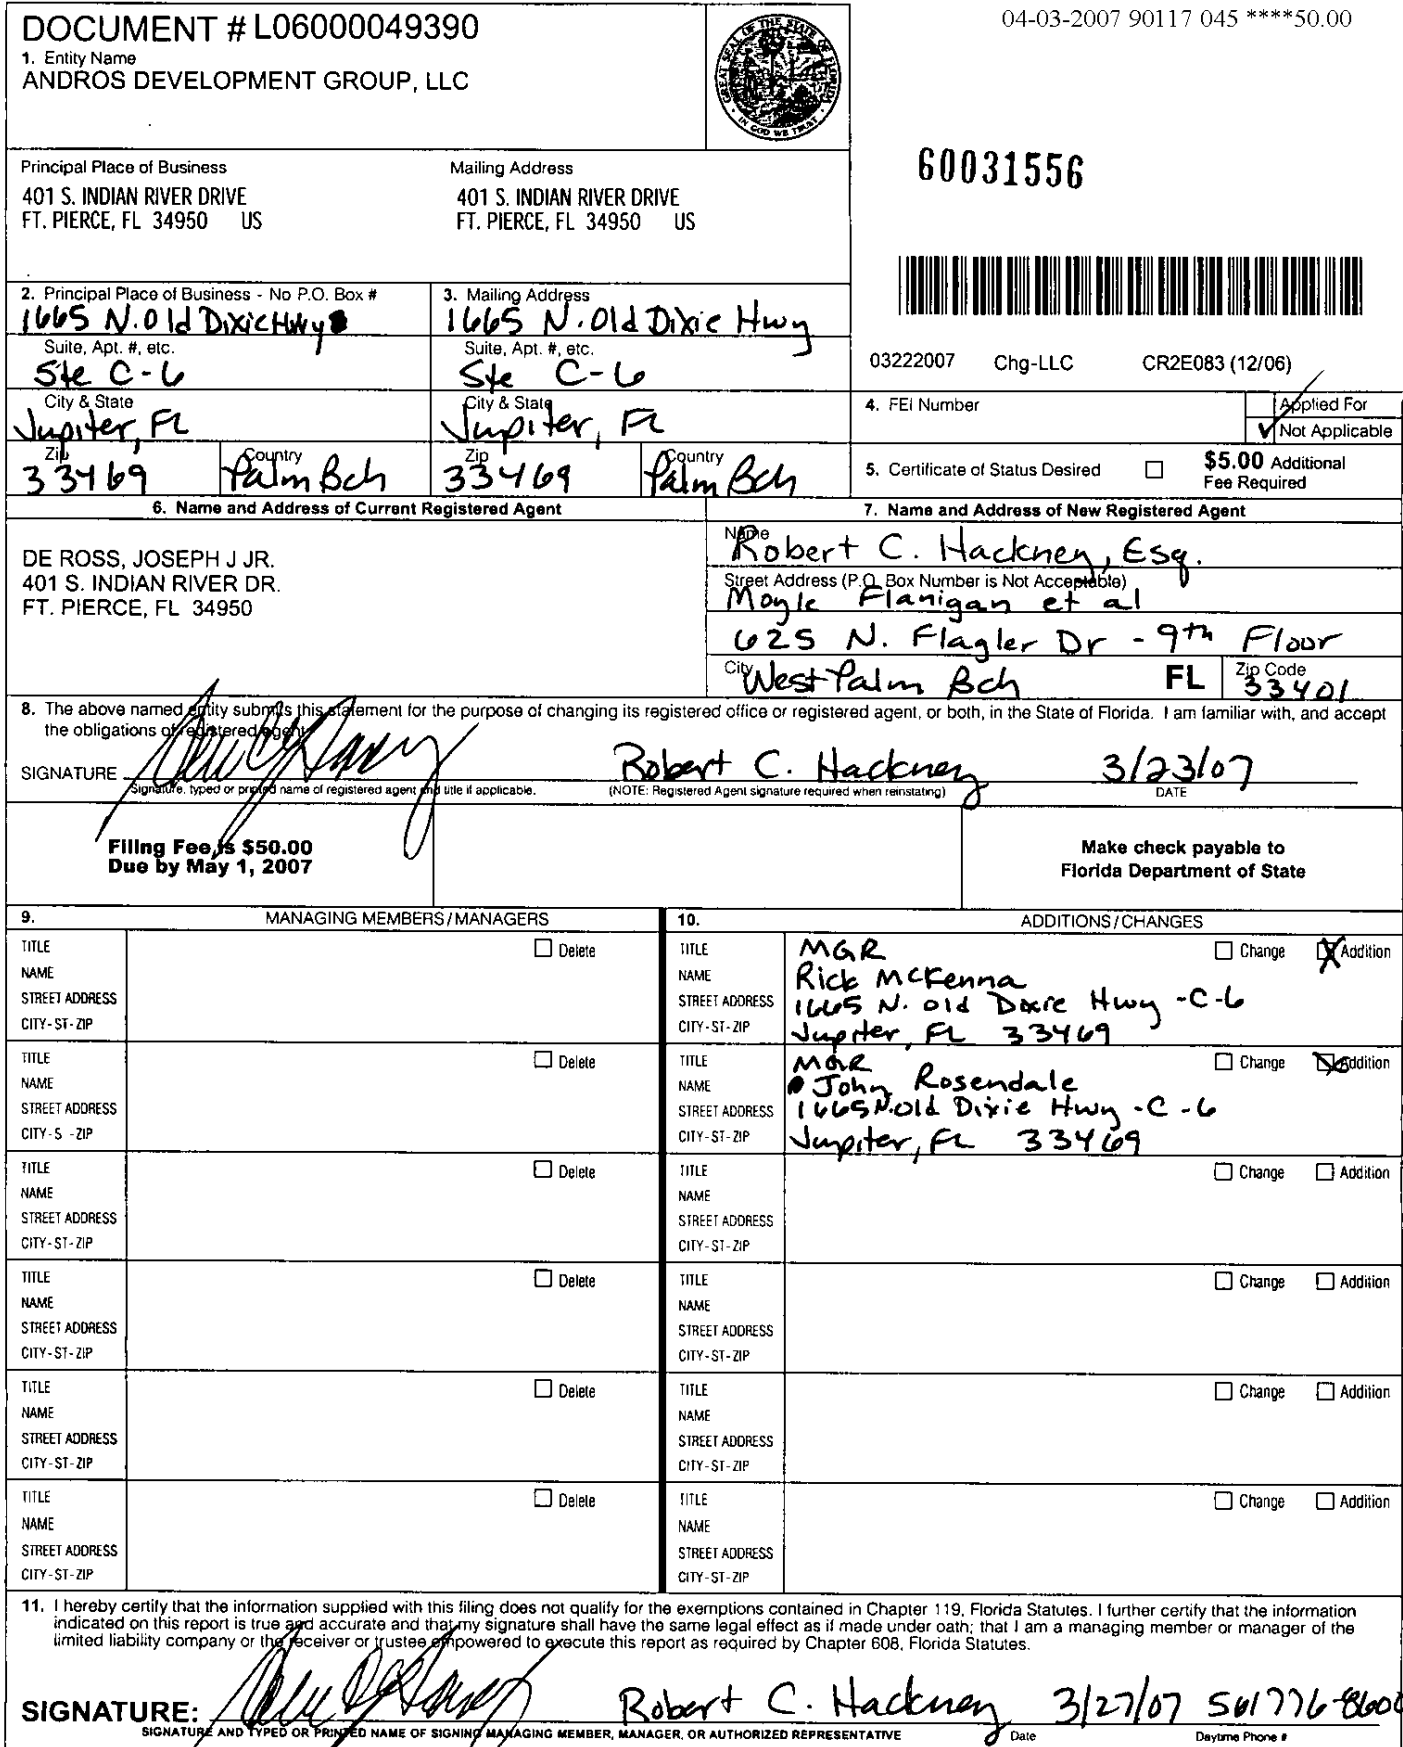 DOCUMENT # L06000049390
04-03-2007 90117 045 ****50.00
1. Entity Name
ANDROS DEVELOPMENT GROUP, LLC
GREAT SEAL OF THE STATE OF FLORIDA
IN GOD WE TRUST
60031556
Principal Place of Business
401 S. INDIAN RIVER DRIVE
FT. PIERCE, FL 34950 US
Mailing Address
401 S. INDIAN RIVER DRIVE
FT. PIERCE, FL 34950 US
2. Principal Place of Business - No P.O. Box #
1665 N. Old Dixie Hwy
Suite, Apt. #, etc.
Ste C-6
City & State
Jupiter, FL
Zip
33469
Country
Palm Bch
3. Mailing Address
1665 N. Old Dixie Hwy
Suite, Apt. #, etc.
Ste C-6
City & State
Jupiter, FL
Zip
33469
Country
Palm Bch
03222007 Chg-LLC CR2E083 (12/06)
4. FEI Number
Applied For
Not Applicable
5. Certificate of Status Desired
$5.00 Additional
Fee Required
6. Name and Address of Current Registered Agent
DE ROSS, JOSEPH J JR.
401 S. INDIAN RIVER DR.
FT. PIERCE, FL 34950
7. Name and Address of New Registered Agent
Name
Robert C. Hackney, Esq.
Street Address (P.O. Box Number is Not Acceptable)
Moyle Flanigan et al
625 N. Flagler Dr - 9th Floor
City
West Palm Bch
FL
Zip Code
33401
8. The above named entity submits this statement for the purpose of changing its registered office or registered agent, or both, in the State of Florida. I am familiar with, and accept
the obligations of registered agent.
SIGNATURE Robert C. Hackney 3/23/07
Signature, typed or printed name of registered agent and title if applicable. (NOTE: Registered Agent signature required when reinstating) DATE
Filing Fee is $50.00
Due by May 1, 2007
Make check payable to
Florida Department of State
9. MANAGING MEMBERS/MANAGERS
TITLE
Delete
NAME
STREET ADDRESS
CITY-ST-ZIP
TITLE
Delete
NAME
STREET ADDRESS
CITY-S -ZIP
TITLE
Delete
NAME
STREET ADDRESS
CITY-ST-ZIP
TITLE
Delete
NAME
STREET ADDRESS
CITY-ST-ZIP
TITLE
Delete
NAME
STREET ADDRESS
CITY-ST-ZIP
TITLE
Delete
NAME
STREET ADDRESS
CITY-ST-ZIP
10. ADDITIONS/CHANGES
TITLE MGR Change Addition
NAME Rick McKenna
STREET ADDRESS 1665 N. Old Dixie Hwy -C-6
CITY-ST-ZIP Jupiter, FL 33469
TITLE MGR Change Addition
NAME John Rosendale
STREET ADDRESS 1665 N. Old Dixie Hwy -C-6
CITY-ST-ZIP Jupiter, FL 33469
TITLE Change Addition
NAME
STREET ADDRESS
CITY-ST-ZIP
TITLE Change Addition
NAME
STREET ADDRESS
CITY-ST-ZIP
TITLE Change Addition
NAME
STREET ADDRESS
CITY-ST-ZIP
TITLE Change Addition
NAME
STREET ADDRESS
CITY-ST-ZIP
11. I hereby certify that the information supplied with this filing does not qualify for the exemptions contained in Chapter 119, Florida Statutes. I further certify that the information
indicated on this report is true and accurate and that my signature shall have the same legal effect as if made under oath; that I am a managing member or manager of the
limited liability company or the receiver or trustee empowered to execute this report as required by Chapter 608, Florida Statutes.
SIGNATURE: Robert C. Hackney 3/27/07 561 776-8600
SIGNATURE AND TYPED OR PRINTED NAME OF SIGNING MANAGING MEMBER, MANAGER, OR AUTHORIZED REPRESENTATIVE Date Daytime Phone #